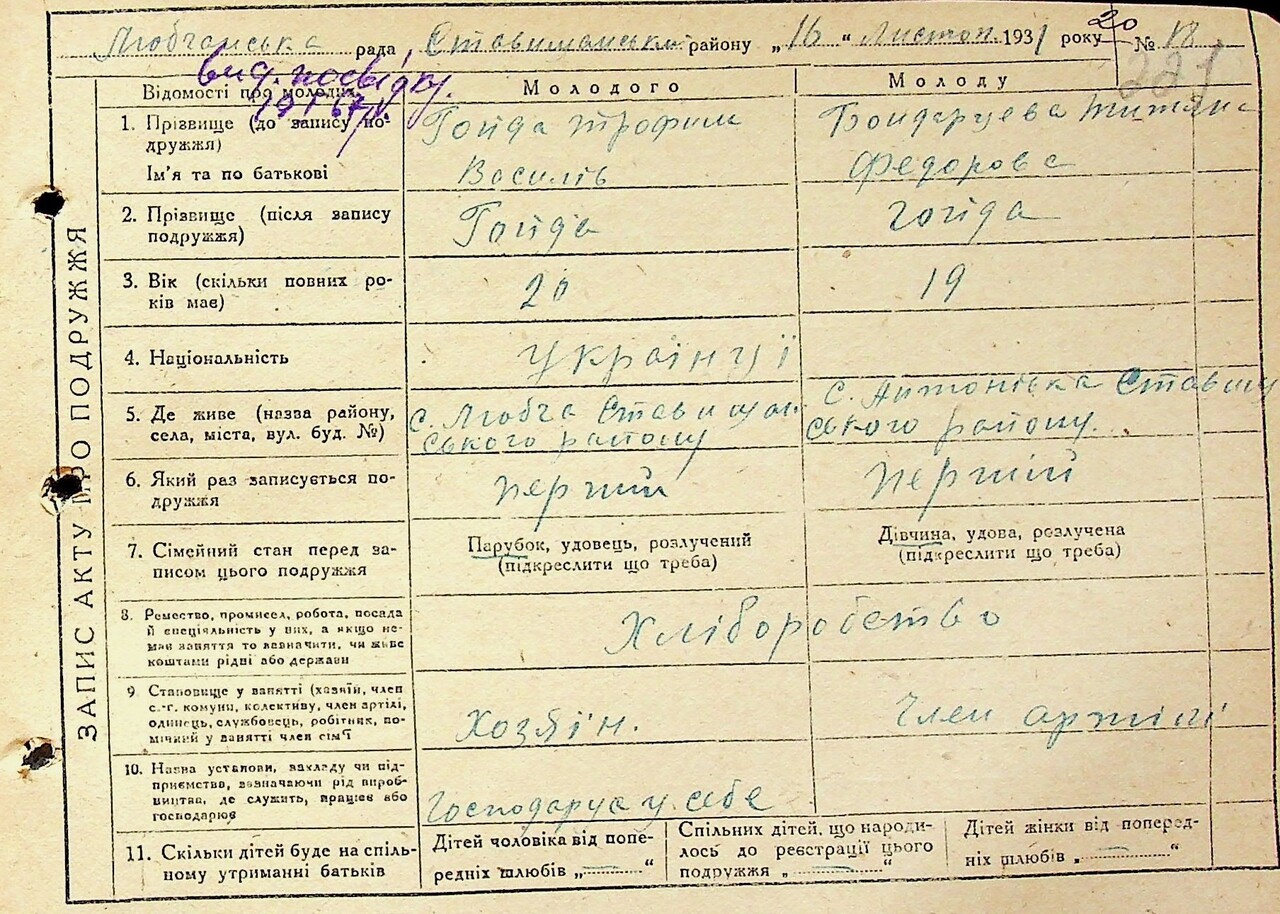 Любчанська рада, Ставищанськ. району „16“ Листоп. 1931 року № 18
20
221
вид. посвідку.
Відомості про молодих
Молодого
Молоду
ЗАПИС АКТУ ПРО ПОДРУЖЖЯ
1. Прізвище (до запису по-
дружжя)
Ім'я та по батькові
Гойда Трофим
Василів
Бондарцева Титяна
Федорова
2. Прізвище (після запису
подружжя)
Гойда
Гойда
3. Вік (скільки повних ро-
ків має)
20
19
4. Національність
Українці
5. Де живе (назва району,
села, міста, вул. буд. №)
с. Любча Ставищан-
ського району
с. Антонівка Ставищ
ського району.
6. Який раз записується по-
дружжя
перший
перший
7. Сімейний стан перед за-
писом цього подружжя
Парубок, удовець, розлучений
(підкреслити що треба)
Дівчина, удова, розлучена
(підкреслити що треба)
8. Ремество, промисел, робота, посада
й спеціяльність у них, а якщо не-
має заняття то зазначити, чи живе
коштами рідні або держави
Хліборобство
9 Становище у занятті (хазяїн, член
с.-г. комуни, колективу, член артілі,
одинець, службовець, робітник, по-
мічний у занятті член сім'ї
Хозяїн.
Член артілі
10. Назва установи, закладу чи під-
приємства, зазначаючи рід вироб-
ництва, де служить, працює або
господарює
Господарує у себе
11. Скільки дітей буде на спіль-
ному утриманні батьків
Дітей чоловіка від попе-
редніх шлюбів „ — “
Спільних дітей, що народи-
лось до реєстрації цього
подружжя „ — “
Дітей жінки від поперед-
ніх шлюбів „ — “